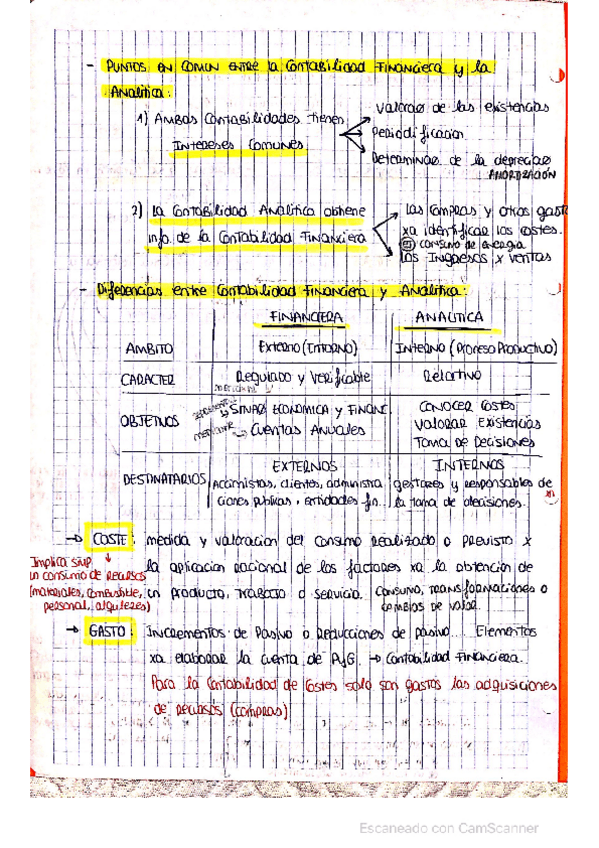 - PUNTOS EN COMUN ENTRE la Contabilidad Financiera y la
Analítica:
1) Ambas Contabilidades tienen
Intereses Comunes
Valorac de las existencias
Periodificacion
Determinac de la deprec
AMORTIZACIÓN
2) la Contabilidad Analitica obtiene
info. de la Contabilidad Financiera
las Compras y otros gast
xa identificar los costes.
consumo de energia
los Ingresos x ventas
- Diferencias entre Contabilidad Financiera y Analitica:
FINANCIERA ANALITICA
AMBITO Externo (Entorno) Interno (Proceso Productivo)
CARACTER Regulado y Verificable Relativo
OBJETIVOS
SITUAC ECONOMICA y FINANC.
mediante Cuentas Anuales
CONOCER Costes
Valorar Existencias
Toma de Decisiones
DESTINATARIOS
EXTERNOS
Accionistas, clientes, administra
ciones publicas, entidades fin..
INTERNOS
gestores y responsables de
la toma de decisiones.
→ COSTE: medida y valoracion del consumo realizado o previsto x
la aplicacion racional de los factores xa la obtencion de
un producto, trabajo o servicio. Consumo, transformaciones o
cambios de valor.
Implica
un consumo de recursos
(materiales, combustible,
personal, alquileres)
→ GASTO: Incrementos de Pasivo o Reducciones de pasivo... Elementos
xa elaborar la cuenta de PyG. → Contabilidad Financiera.
Para la Contabilidad de Costes solo son gastos las adquisiciones
de recursos (compras)
Escaneado con CamScanner